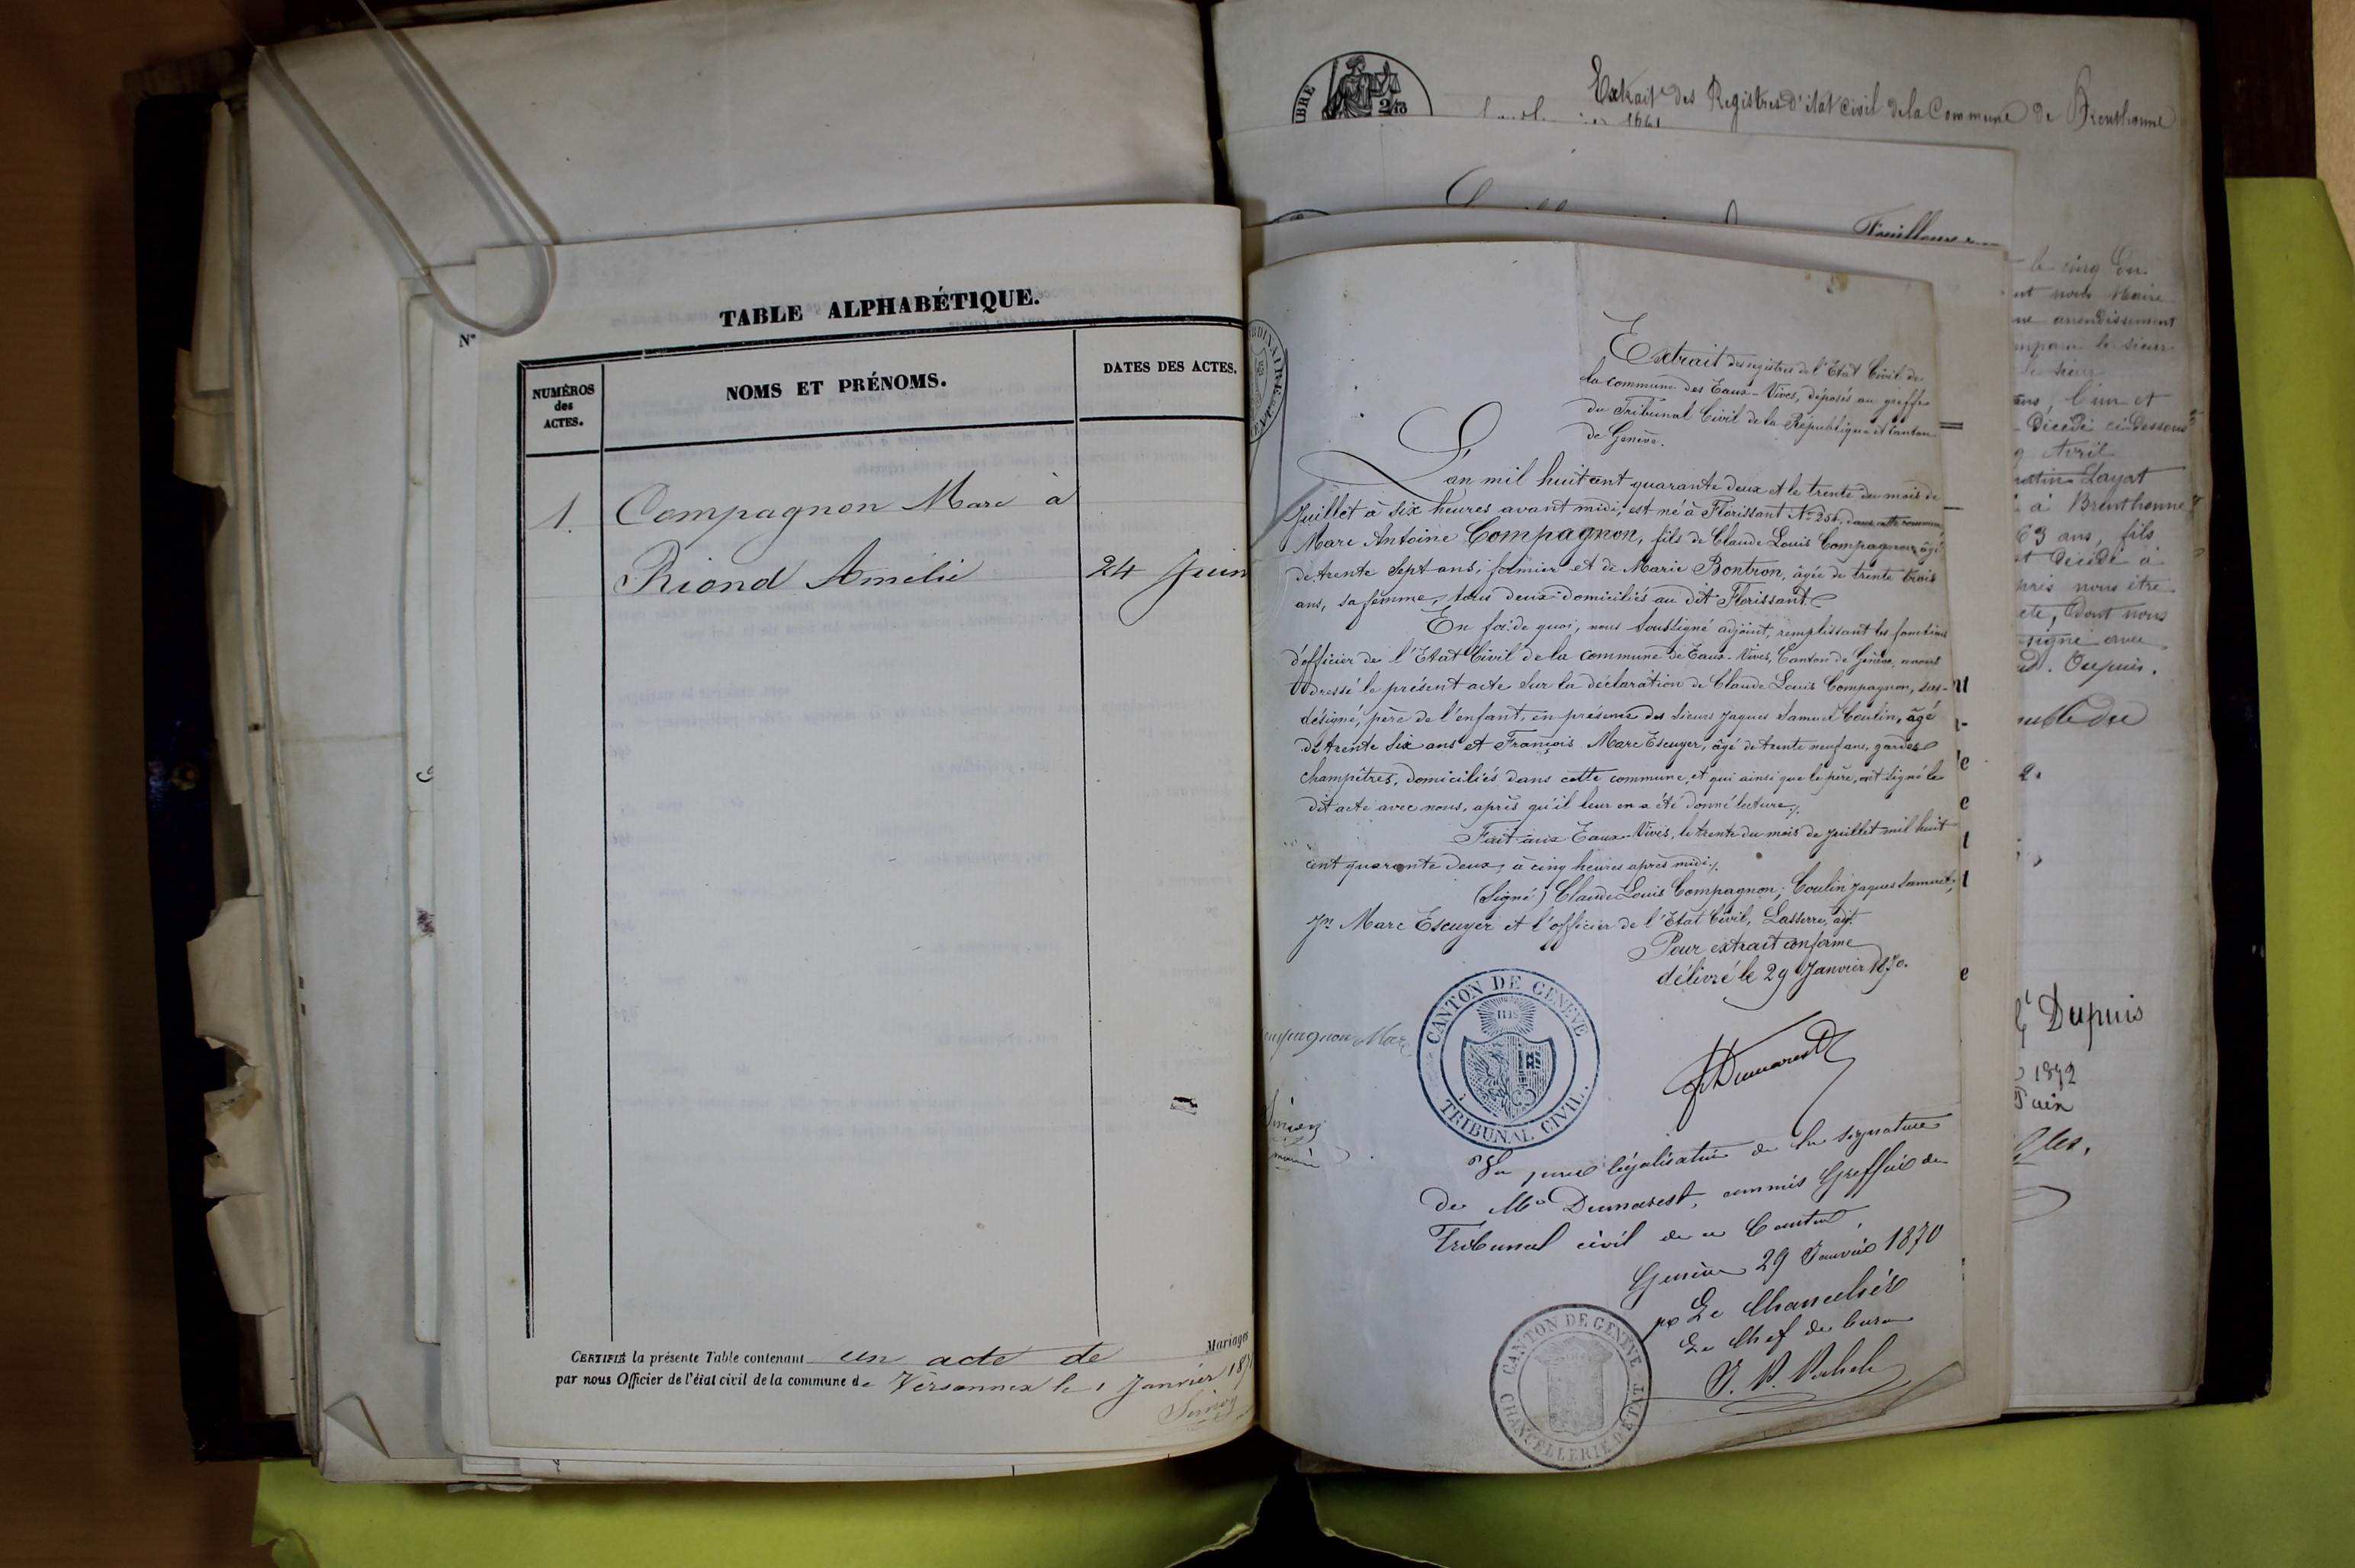 N°
TABLE ALPHABÉTIQUE.
NUMÉROS
des
ACTES.
NOMS ET PRÉNOMS.
DATES DES ACTES.
1. Compagnon Marc à
Riond Amélie 24 Juin
Mariages
CERTIFIÉ la présente Table contenant un acte de
par nous Officier de l'état civil de la commune de Versonnex le 1 Janvier 187
LIBRE
2/10
Extrait des Registres d'état civil de la Commune de Brenthonne
1661
Extrait des registres de l'Etat Civil de
la commune des Eaux-Vives, déposés au greffe
du Tribunal Civil de la République et Canton
de Genève.
L'an mil huit cent quarante deux et le trente du mois de
Juillet à six heures avant midi, est né à Florissant N° 256, dans cette commune,
Marc Antoine Compagnon, fils de Claude Louis Compagnon, âgé
de trente sept ans, fermier et de Marie Bontron, âgée de trente trois
ans, sa femme, tous deux domiciliés au dit Florissant.
En foi de quoi, nous soussigné adjoint, remplissant les fonctions
d'officier de l'Etat Civil de la commune de Eaux-Vives, Canton de Genève, avons
dressé le présent acte sur la déclaration de Claude Louis Compagnon, sus-
désigné, père de l'enfant, en présence des Sieurs Jaques Samuel Coulin, âgé
de trente six ans et François Marc Escuyer, âgé de trente neuf ans, gardes
champêtres, domiciliés dans cette commune, et qui ainsi que le père, ont signé le
dit acte avec nous, après qu'il leur en a été donné lecture./.
Fait aux Eaux-Vives, le trente du mois de Juillet mil huit
cent quarante deux, à cinq heures après midi./.
(Signé) Claude Louis Compagnon; Coulin Jaques Samuel;
Fs Marc Escuyer et l'officier de l'Etat Civil, Lasserre, adjt.
Pour extrait conforme
délivré le 29 Janvier 1870.
CANTON DE GENÈVE
IHS
TRIBUNAL CIVIL.
Dumarest
Vu pour légalisation de la signature
de Mr Dumarest, commis Greffier du
Tribunal civil de ce Canton.
Genève 29 Janvier 1870
pr Le Chancelier
Le Chef de bureau
CANTON DE GENÈVE
CHANCELLERIE D'ETAT
ompagnon Marc
le cinq du
nous Maire
arrondissement
le sieur
l'un et
Décédé ci-dessous
Avril
Layat
à Brenthonne
63 ans, fils
Décédé à
nous être
dont nous
signé avec
Dupuis.
Dupuis
1872
Juin